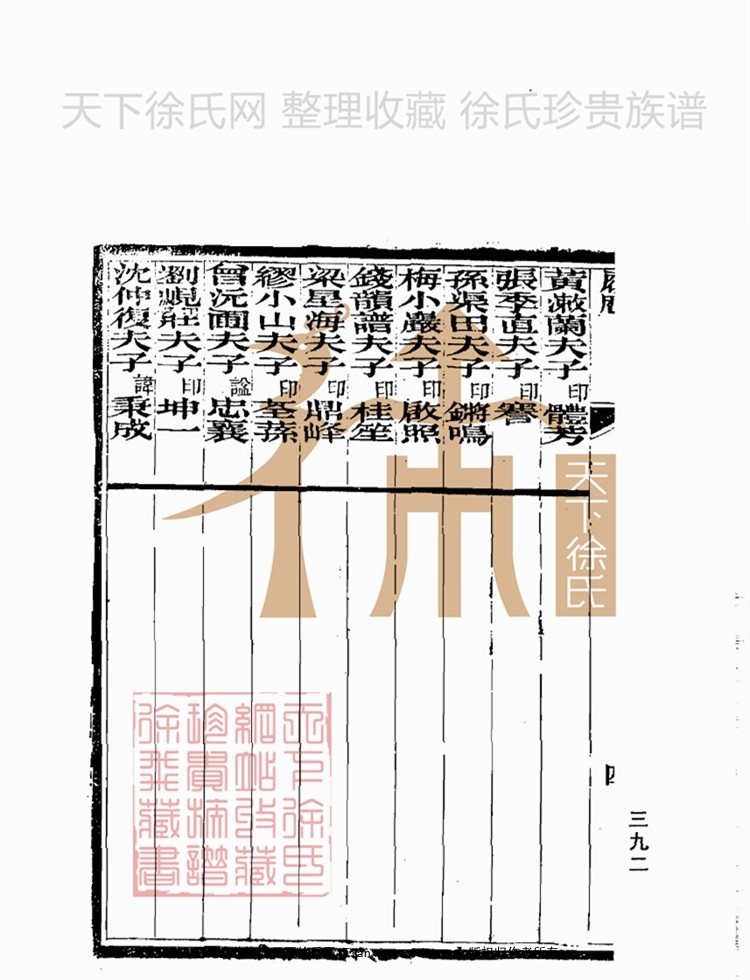 天下徐氏网 整理收藏 徐氏珍贵族谱
黃漱蘭夫子印體芳
張季直夫子印謇
孫渠田夫子印鏘鳴
梅小巖夫子印啟照
錢韻譜夫子印桂笙
梁星海夫子印鼎峰
繆小山夫子印荃蓀
曾沅圃夫子謚忠襄
劉峴莊夫子印坤一
沈仲復夫子諱秉成
四
三九二
天下徐氏
天下徐氏
網站收藏
珍貴族譜
徐氏藏書